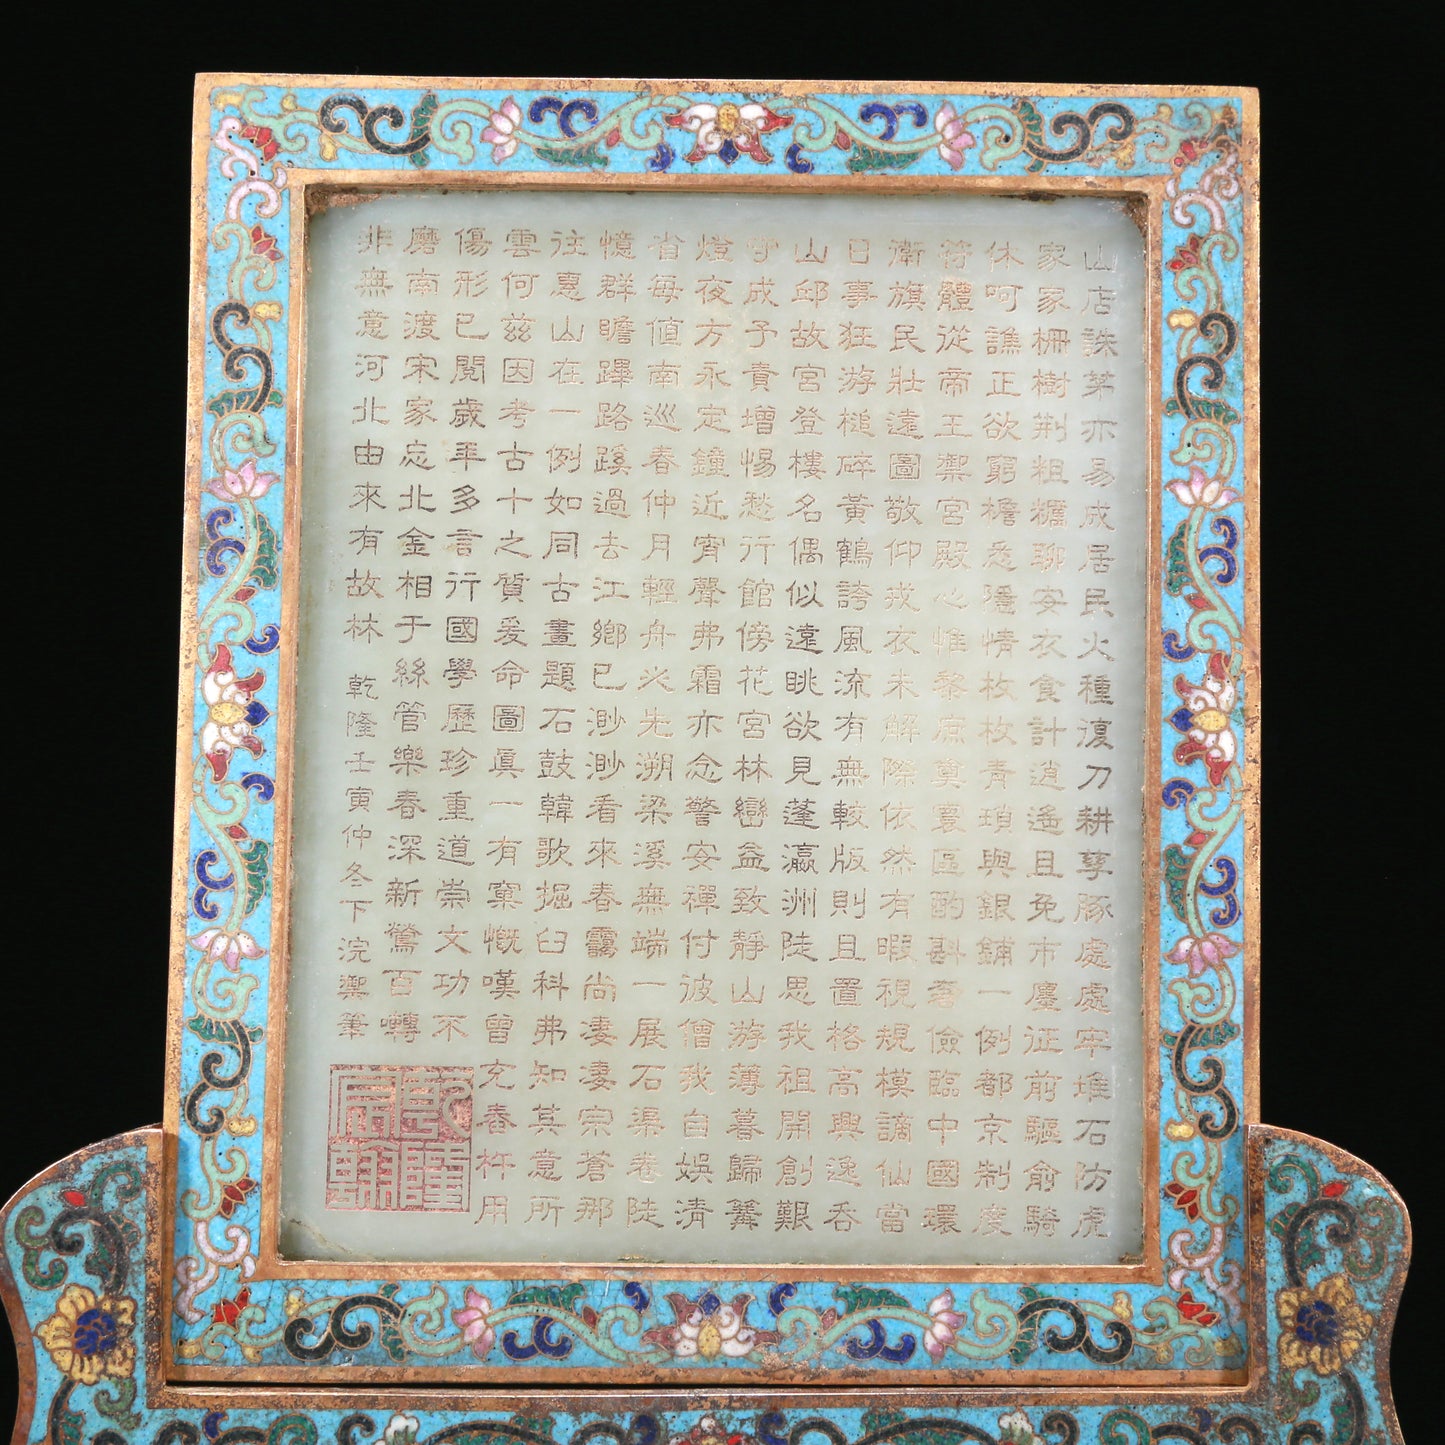 山店誅茅亦易成居民火種復刀耕孳豚處處牢堆石防虎
家家柵樹荆粗糲聊安衣食計逍遙且免市廛征前驅俞騎
休呵譙正欲窮檐悉隱情枚枚青瑣與銀鋪一例都京制度
符體從帝王禦宮殿心惟黎庶奠寰區酌斟奢儉臨中國環
衛旗民壯遠圖敬仰戎衣未解際依然有暇視規模謫仙當
日事狂游槌碎黃鶴誇風流有無較版則且置格高興逸吞
山邱故宮登樓名偶似遠眺欲見蓬瀛洲陡思我祖開創艱
守成予責增惕愁行館傍花宮林巒益致靜山游薄暮歸篝
燈夜方永定鐘近宵聲弗霜亦念警安禪付彼僧我自娛清
省每值南巡春仲月輕舟必先溯梁溪無端一展石渠卷陡
憶群瞻蹕路蹊過去江鄉已渺渺看來春靄尚淒淒宗蒼那
往惠山在一例如同古畫題石鼓韓歌掘臼科弗知其意所
雲何茲因考古十之質爰命圖真一有窠慨嘆曾充舂杵用
傷形已閱歲年多言行國學歷珍重道崇文功不
磨南渡宋家忘北金相于絲管樂春深新鶯百囀
非無意河北由來有故林 乾隆壬寅仲冬下浣禦筆
乾隆宸翰